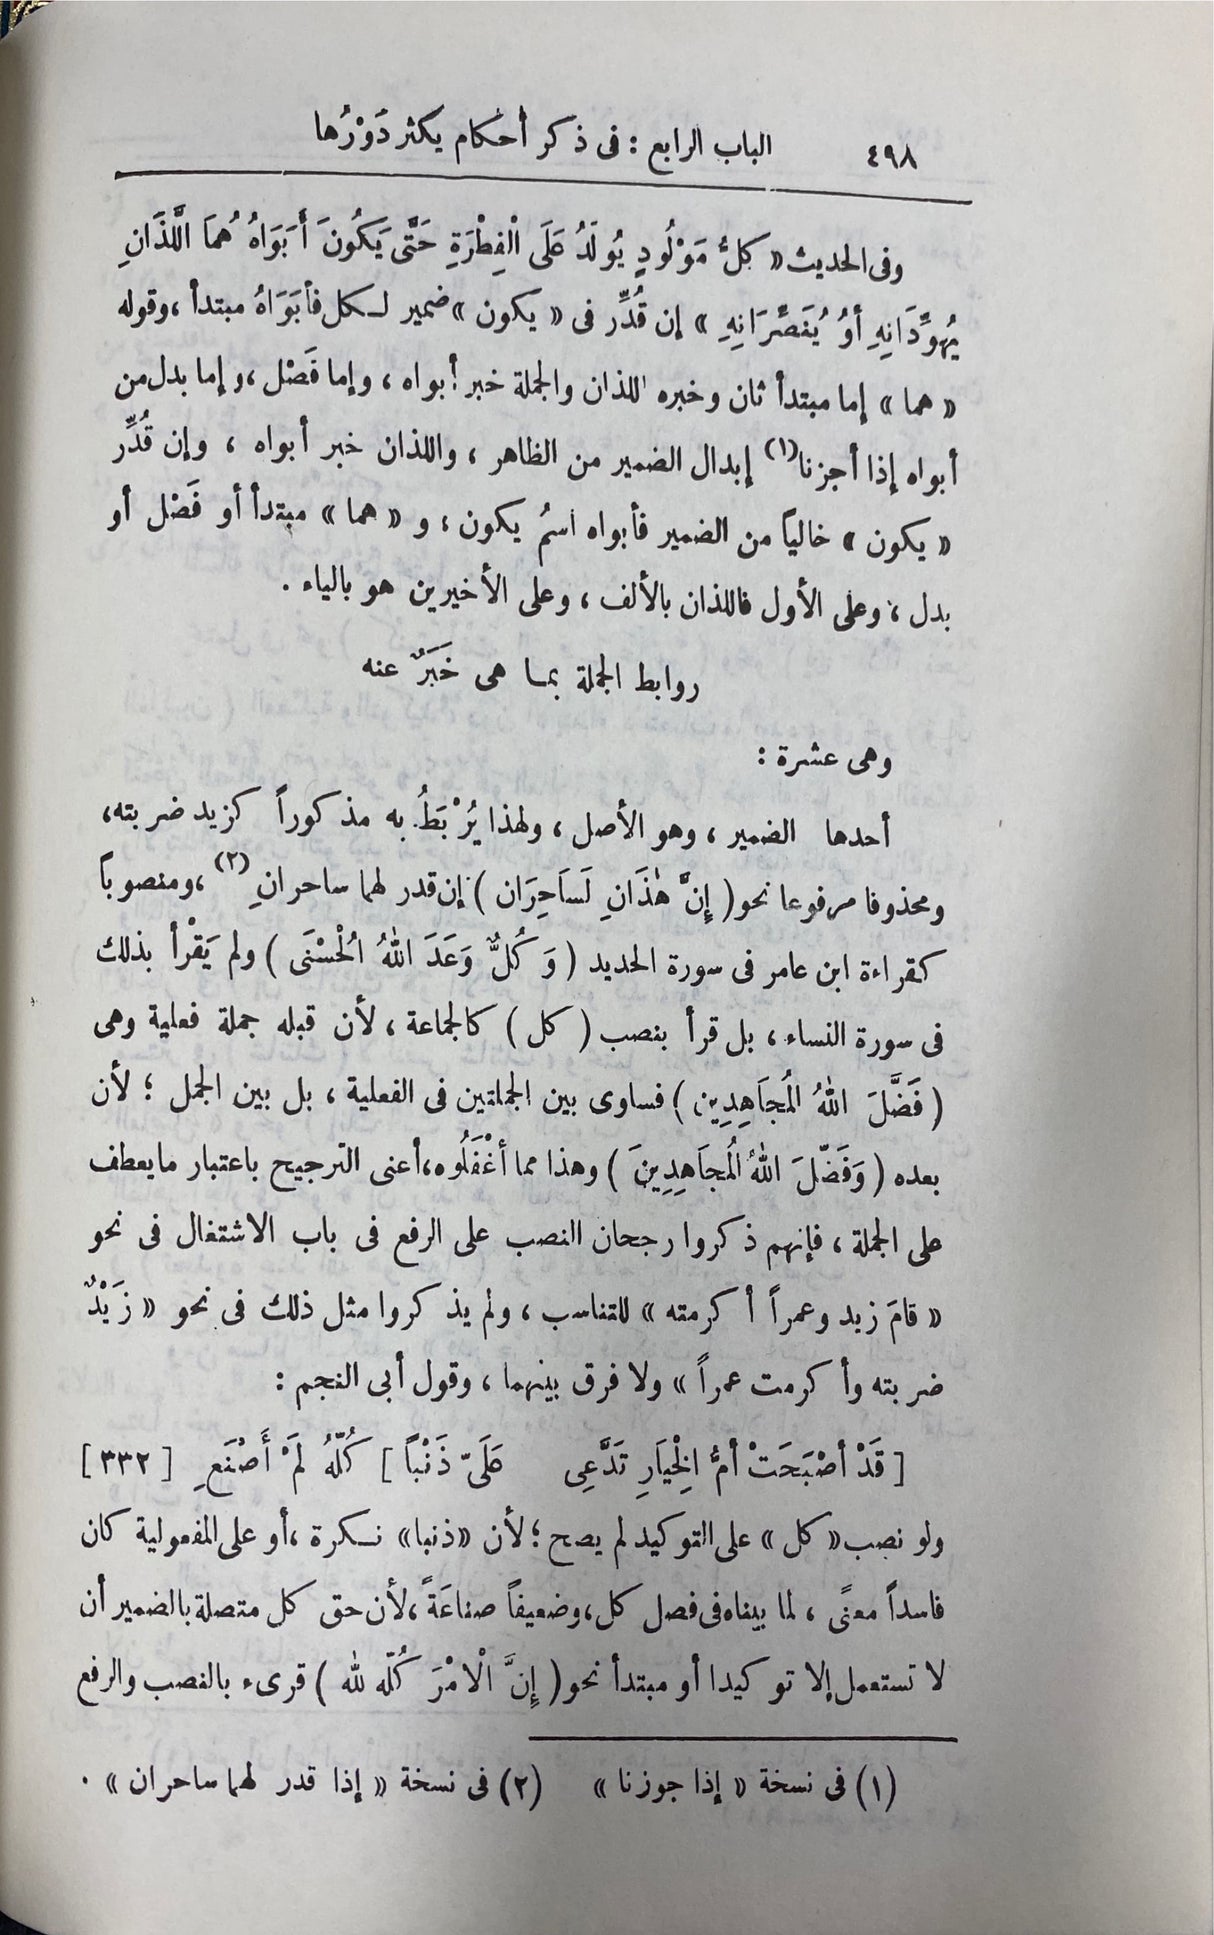 ٤٩٨ الباب الرابع : فى ذكر أحكام يكثر دَوْرُها
وفى الحديث « كلُّ مَوْلُودٍ يُولَدُ عَلَى الْفِطْرَةِ حَتَّى يَكُونَ أَبَوَاهُ هُمَا اللَّذَانِ
يُهَوِّدَانِهِ أوْ يُنَصِّرَانِهِ » إن قُدِّر فى « يكون » ضمير لـكل فأبَوَاهُ مبتدأ ، وقوله
« هما » إما مبتدأ ثان وخبره اللذان والجملة خبر أبواه ، وإما فَصْل ، وإما بدل من
أبواه إذا أجزنا(١) إبدال الضمير من الظاهر ، واللذان خبر أبواه ، وإن قُدِّر
« يكون » خالياً من الضمير فأبواه اسمُ يكون ، و « هما » مبتدأ أو فَصْل أو
بدل ، وعلى الأول فاللذان بالألف ، وعلى الأخيرين هو بالياء .
روابط الجملة بمـا هى خَبَرٌ عنه
وهى عشرة :
أحدها الضمير ، وهو الأصل ، ولهذا يُرْبَطُ به مذكوراً كزيد ضربته ،
ومحذوفا مرفوعا نحو ( إِنَّ هٰذَانِ لَسَاحِرَان ) إن قدر لهما ساحرانِ (٢) ، ومنصوباً
كقراءة ابن عامر فى سورة الحديد ( وَكُلٌّ وَعَدَ اللهُ الْحُسْنَى ) ولم يَقْرأ بذلك
فى سورة النساء ، بل قرأ بنصب ( كل ) كالجماعة ، لأن قبله جملة فعلية وهى
( فَضَّلَ اللهُ الْمُجَاهِدِين ) فساوى بين الجملتين فى الفعلية ، بل بين الجمل ؛ لأن
بعده ( وَفَضَّلَ اللهُ الْمُجَاهِدِينَ ) وهذا مما أغْفَلُوه ، أعنى الترجيح باعتبار ما يعطف
على الجملة ، فإنهم ذكروا رجحان النصب على الرفع فى باب الاشتغال فى نحو
« قامَ زيد وعمراً أكرمته » للتناسب ، ولم يذكروا مثل ذلك فى نحو « زَيْدٌ
ضربته وأكرمت عمراً » ولا فرق بينهما ، وقول أبى النجم :
[ قَدْ أصْبَحَتْ أمُّ الْخِيَارِ تَدَّعِى عَلَىّ ذَنْبًا ] كُلّهُ لَمْ أَصْنَعِ [ ٣٣٢ ]
ولو نصب « كل » على التوكيد لم يصح ؛ لأن « ذنبا » نـكرة ، أو على المفعولية كان
فاسداً معنًى ، لما بيناه فى فصل كل ، وضعيفاً صناعَةً ، لأن حق كل متصلة بالضمير أن
لا تستعمل إلا توكيدا أو مبتدأ نحو ( إِنَّ الْامْرَ كُلّه لله ) قرىء بالنصب والرفع
(١) فى نسخة « إذا جوزنا » (٢) فى نسخة « إذا قدر لهما ساحران » .